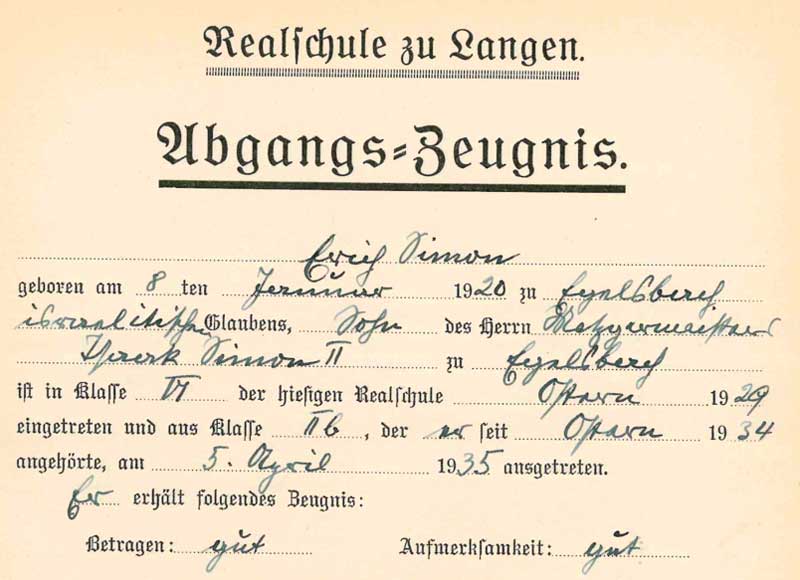 Realschule zu Langen.
Abgangs-Zeugnis.
Erich Simon
geboren am 8 ten Januar 1920 zu Egelsbach
israelitischen Glaubens, Sohn des Herrn Metzgermeisters
Isaak Simon II zu Egelsbach
ist in Klasse VI der hiesigen Realschule Ostern 1929
eingetreten und aus Klasse IIb, der er seit Ostern 1934
angehörte, am 5. April 1935 ausgetreten.
Er erhält folgendes Zeugnis:
Betragen: gut Aufmerksamkeit: gut